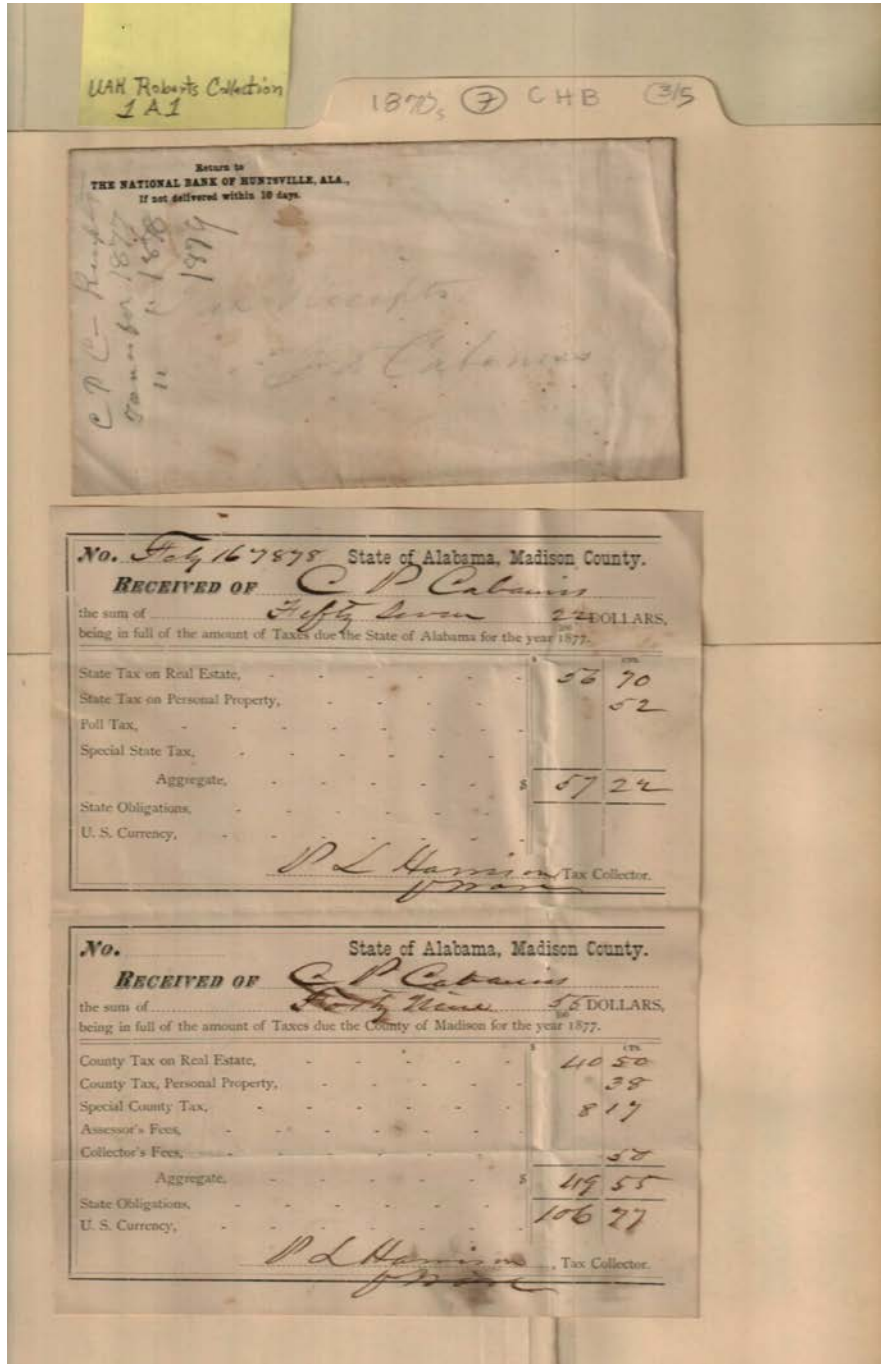 UAH Roberts Collection
1 A 1
1870s 7 CHB 3/5
Return to
THE NATIONAL BANK OF HUNTSVILLE, ALA.,
If not delivered within 10 days.
C P C -
for 1877
" " 1878
1879
Receipts
Cabaniss
No. Feby 16 1878 State of Alabama, Madison County.
RECEIVED OF C P Cabaniss
the sum of Fifty Seven 22/100 DOLLARS,
being in full of the amount of Taxes due the State of Alabama for the year 1877.
$ CTS.
State Tax on Real Estate, - - - - - - 56 70
State Tax on Personal Property, - - - - - 52
Poll Tax, - - - - - - - -
Special State Tax, - - - - - -
Aggregate, - - - - - - $ 57 22
State Obligations, - - - - - -
U. S. Currency, - - - - - - -
P L Harrison, Tax Collector.
No. State of Alabama, Madison County.
RECEIVED OF C P Cabaniss
the sum of Forty Nine 55/100 DOLLARS,
being in full of the amount of Taxes due the County of Madison for the year 1877.
$ CTS.
County Tax on Real Estate, - - - - - - 40 50
County Tax, Personal Property, - - - - - 38
Special County Tax, - - - - - - 8 17
Assessor's Fees, - - - - - - -
Collector's Fees, - - - - - - - 50
Aggregate, - - - - - - $ 49 55
State Obligations, - - - - - - 106 77
U. S. Currency, - - - - - - -
P L Harrison, Tax Collector.